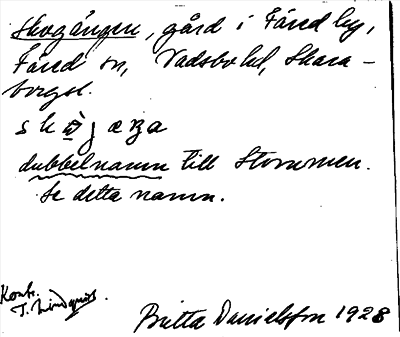 Skogången, gård i Färed by,
Färed sn, Vadsbo hd, Skara-
borgs l.
dubbelnamn till Stommen.
Se detta namn.
Kontr.
T. Lindquist.
Britta Danielsson 1928